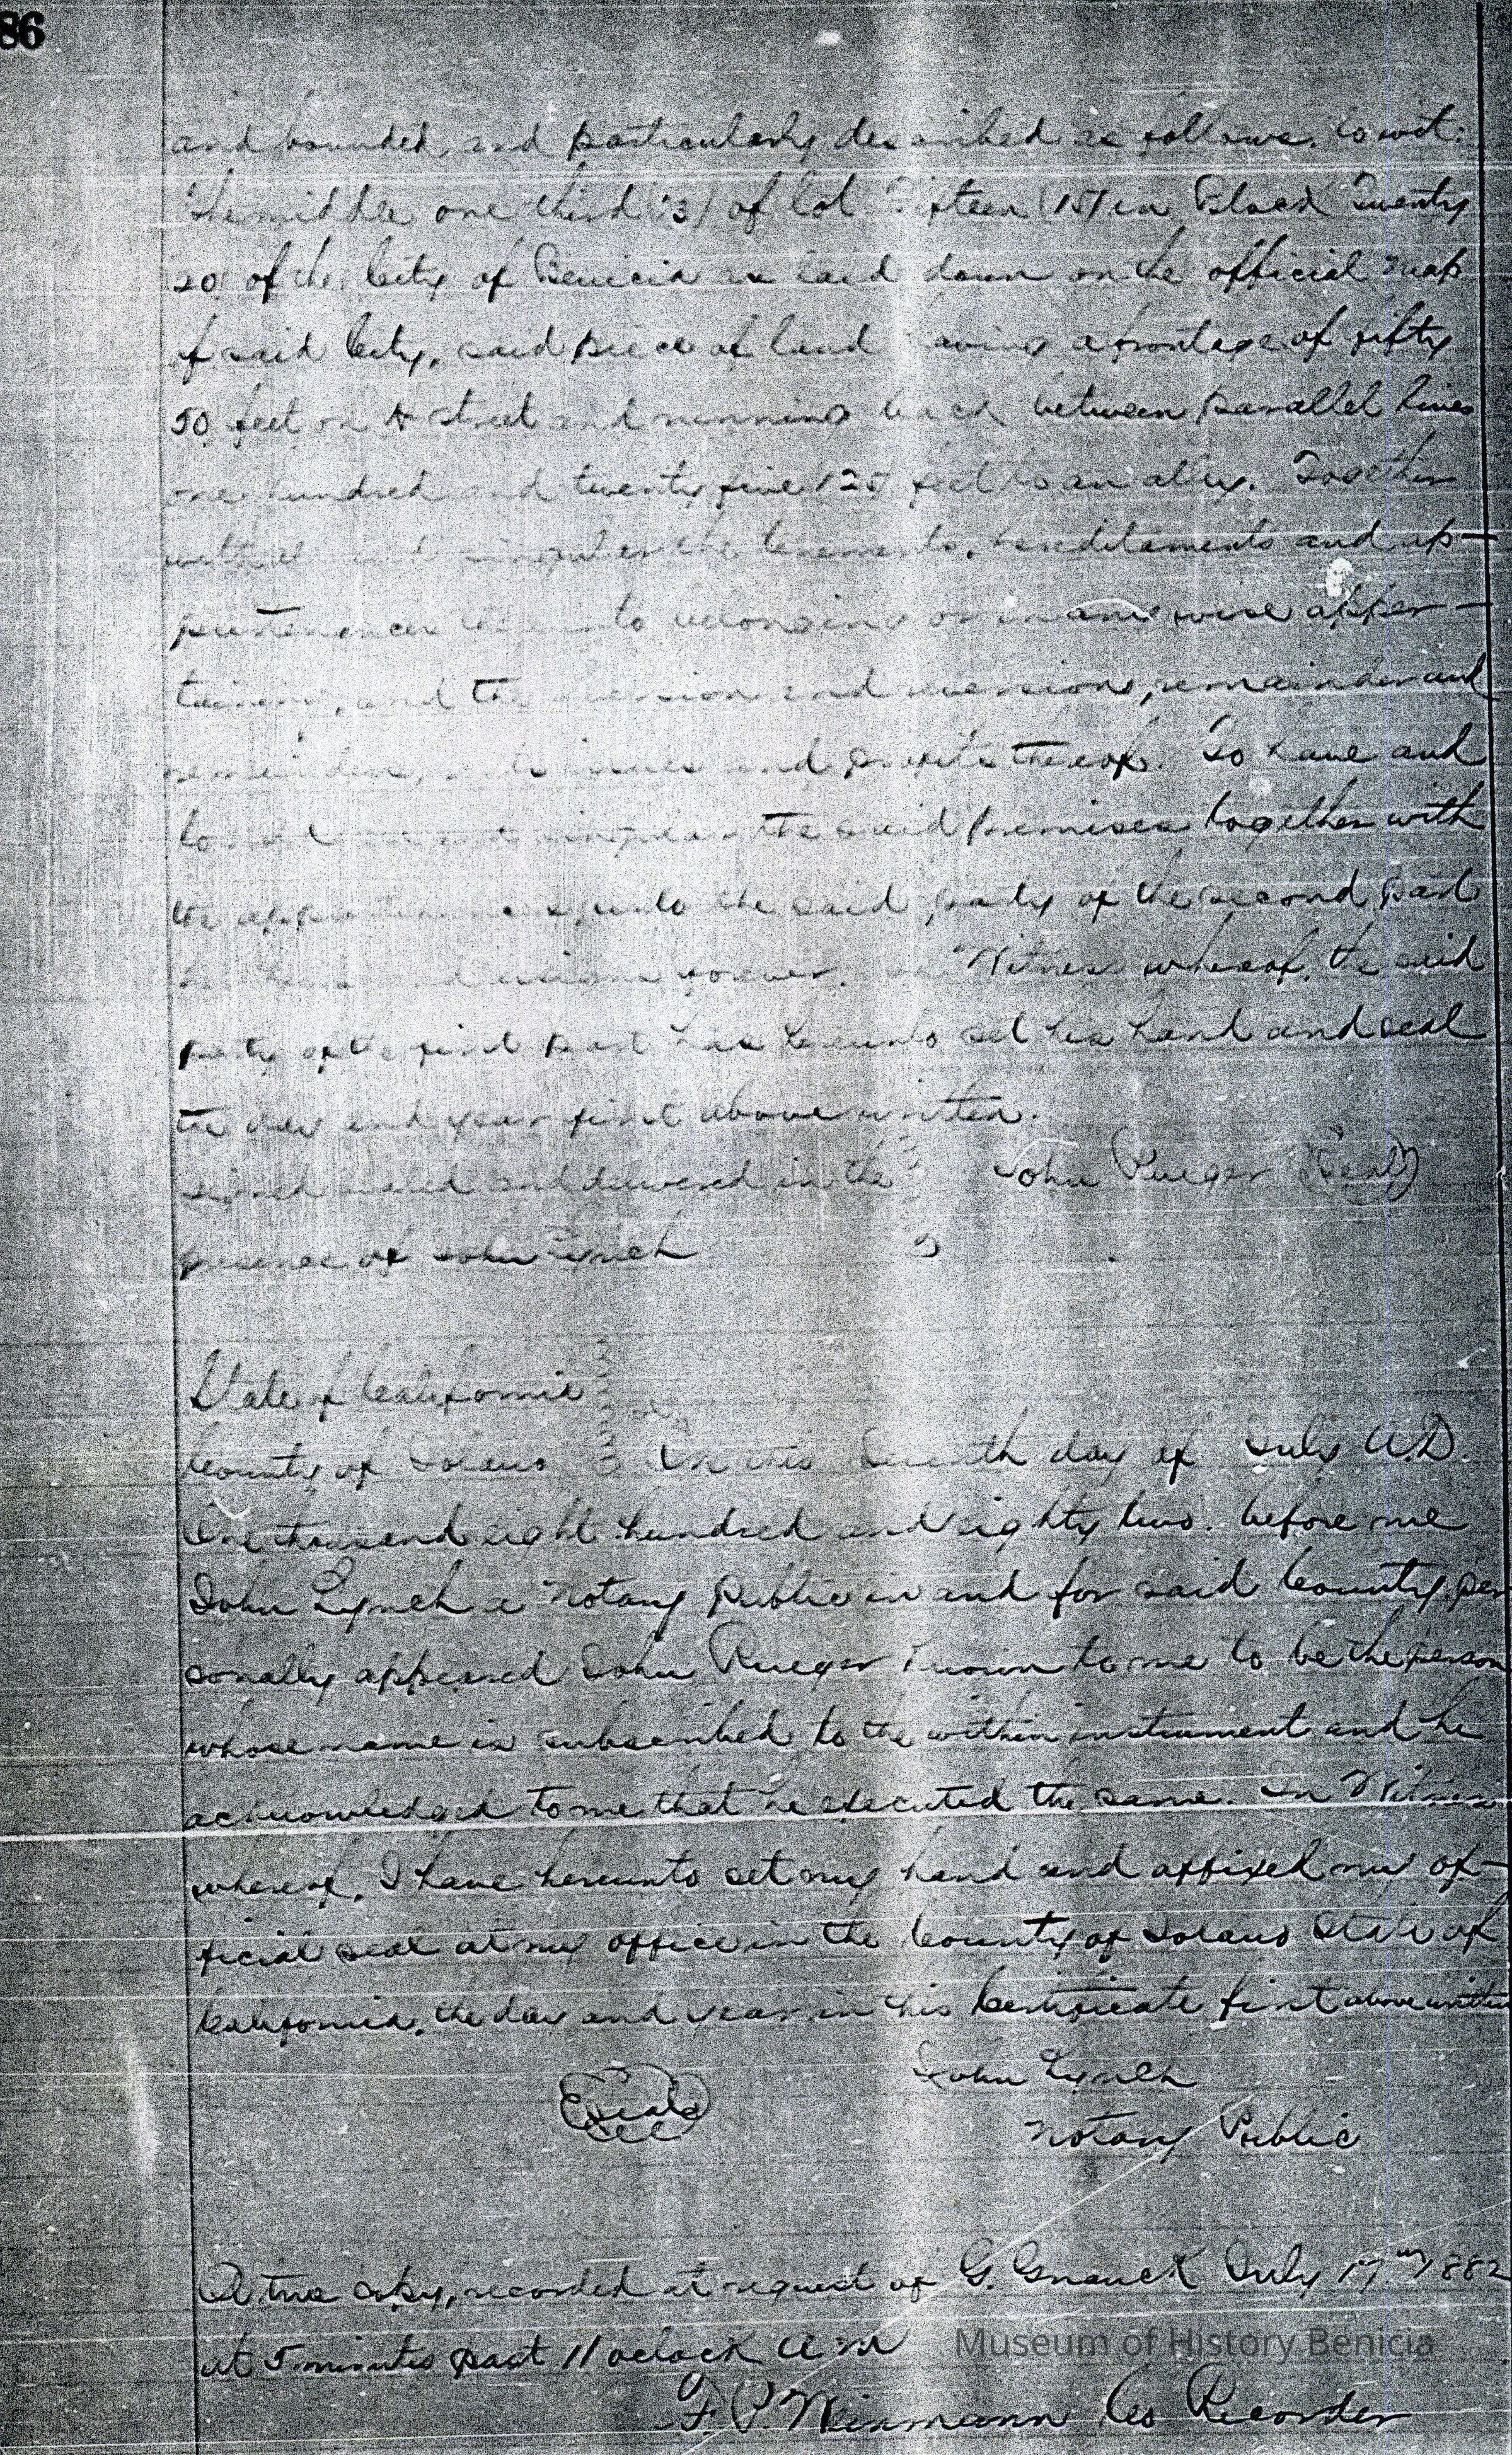 86
and bounded, and particularly described as follows, to wit:
The middle one third (3) of lot Fifteen (15) in Block Twenty
20 of the City of Benicia as laid down on the official map
of said City, said piece of land having a frontage of fifty
50 feet on street and running back between parallel lines
one hundred and twenty five 125 feet to an alley. Together
with singular the tenements, hereditaments and ap-
purtenances thereunto belonging or in any wise apper-
taining, and the reversion and reversions, remainder and
remainders, rents issues and profits thereof. To have and
to singular the said premises together with
the appurtenances, unto the said party of the second part
assigns forever. Witness whereof, the said
party of the first part has hereunto set his hand and seal
the day and year first above written.
signed sealed and delivered in the John Rueger (Seal)
presence of John Lynch
State of California
County of Solano On this day of July A.D.
One thousand eight hundred and eighty two. before me
John Lynch a Notary Public in and for said County, per
sonally appeared John Rueger known to me to be the person
whose name is subscribed to the within instrument and he
acknowledged to me that he executed the same. In Witness
whereof, I have hereunto set my hand and affixed my of-
ficial seal at my office in the County of Solano State of
California, the day and year in this Certificate first above written
John Lynch
(Seal)
Notary Public
A true copy, recorded at request of G. Gnauck July 17th 1882
at 5 minutes past 11 oclock A M
Museum of History Benicia
F. P. Weinmann Co Recorder